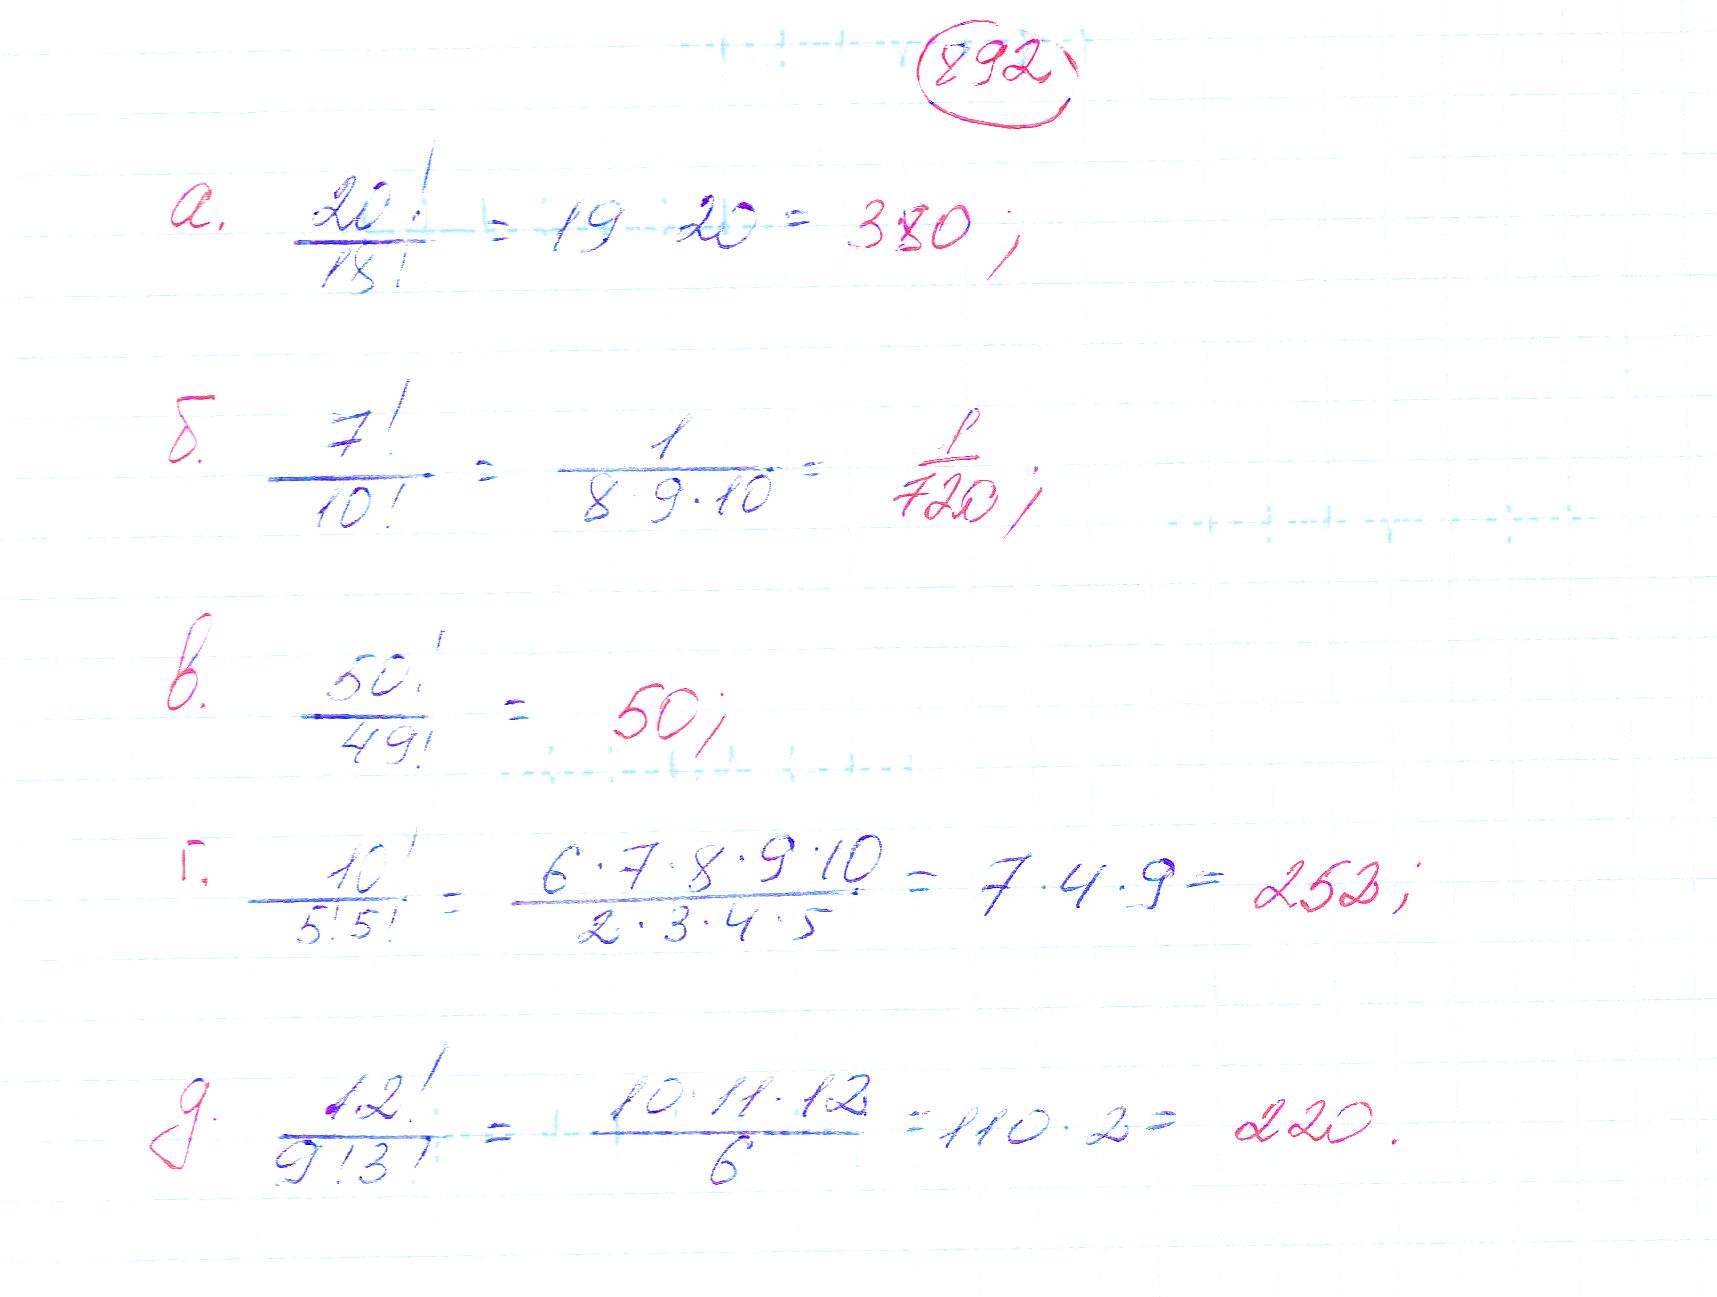 892
а. 20!/18! = 19 · 20 = 380;
б. 7!/10! = 1/(8·9·10) = 1/720;
в. 50!/49! = 50;
г. 10!/(5!5!) = (6·7·8·9·10)/(2·3·4·5) = 7·4·9 = 252;
д. 12!/(9!3!) = (10·11·12)/6 = 110·2 = 220.